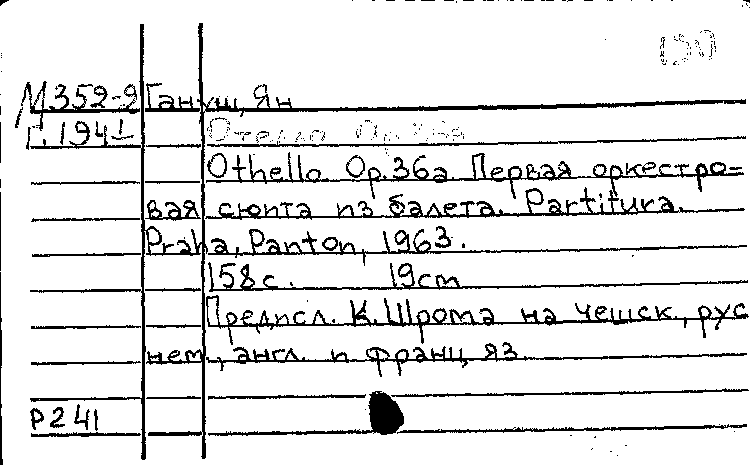 150
М352-9 Гануш, Ян
Г. 194 1 Отелло Ор.36а
Othello. Op.36a. Первая оркестро=
вая сюита из балета. Partitura.
Praha, Panton, 1963.
158с. 19cm
Предисл. К.Шрома на чешск., рус
нем., англ. и франц яз.
P241